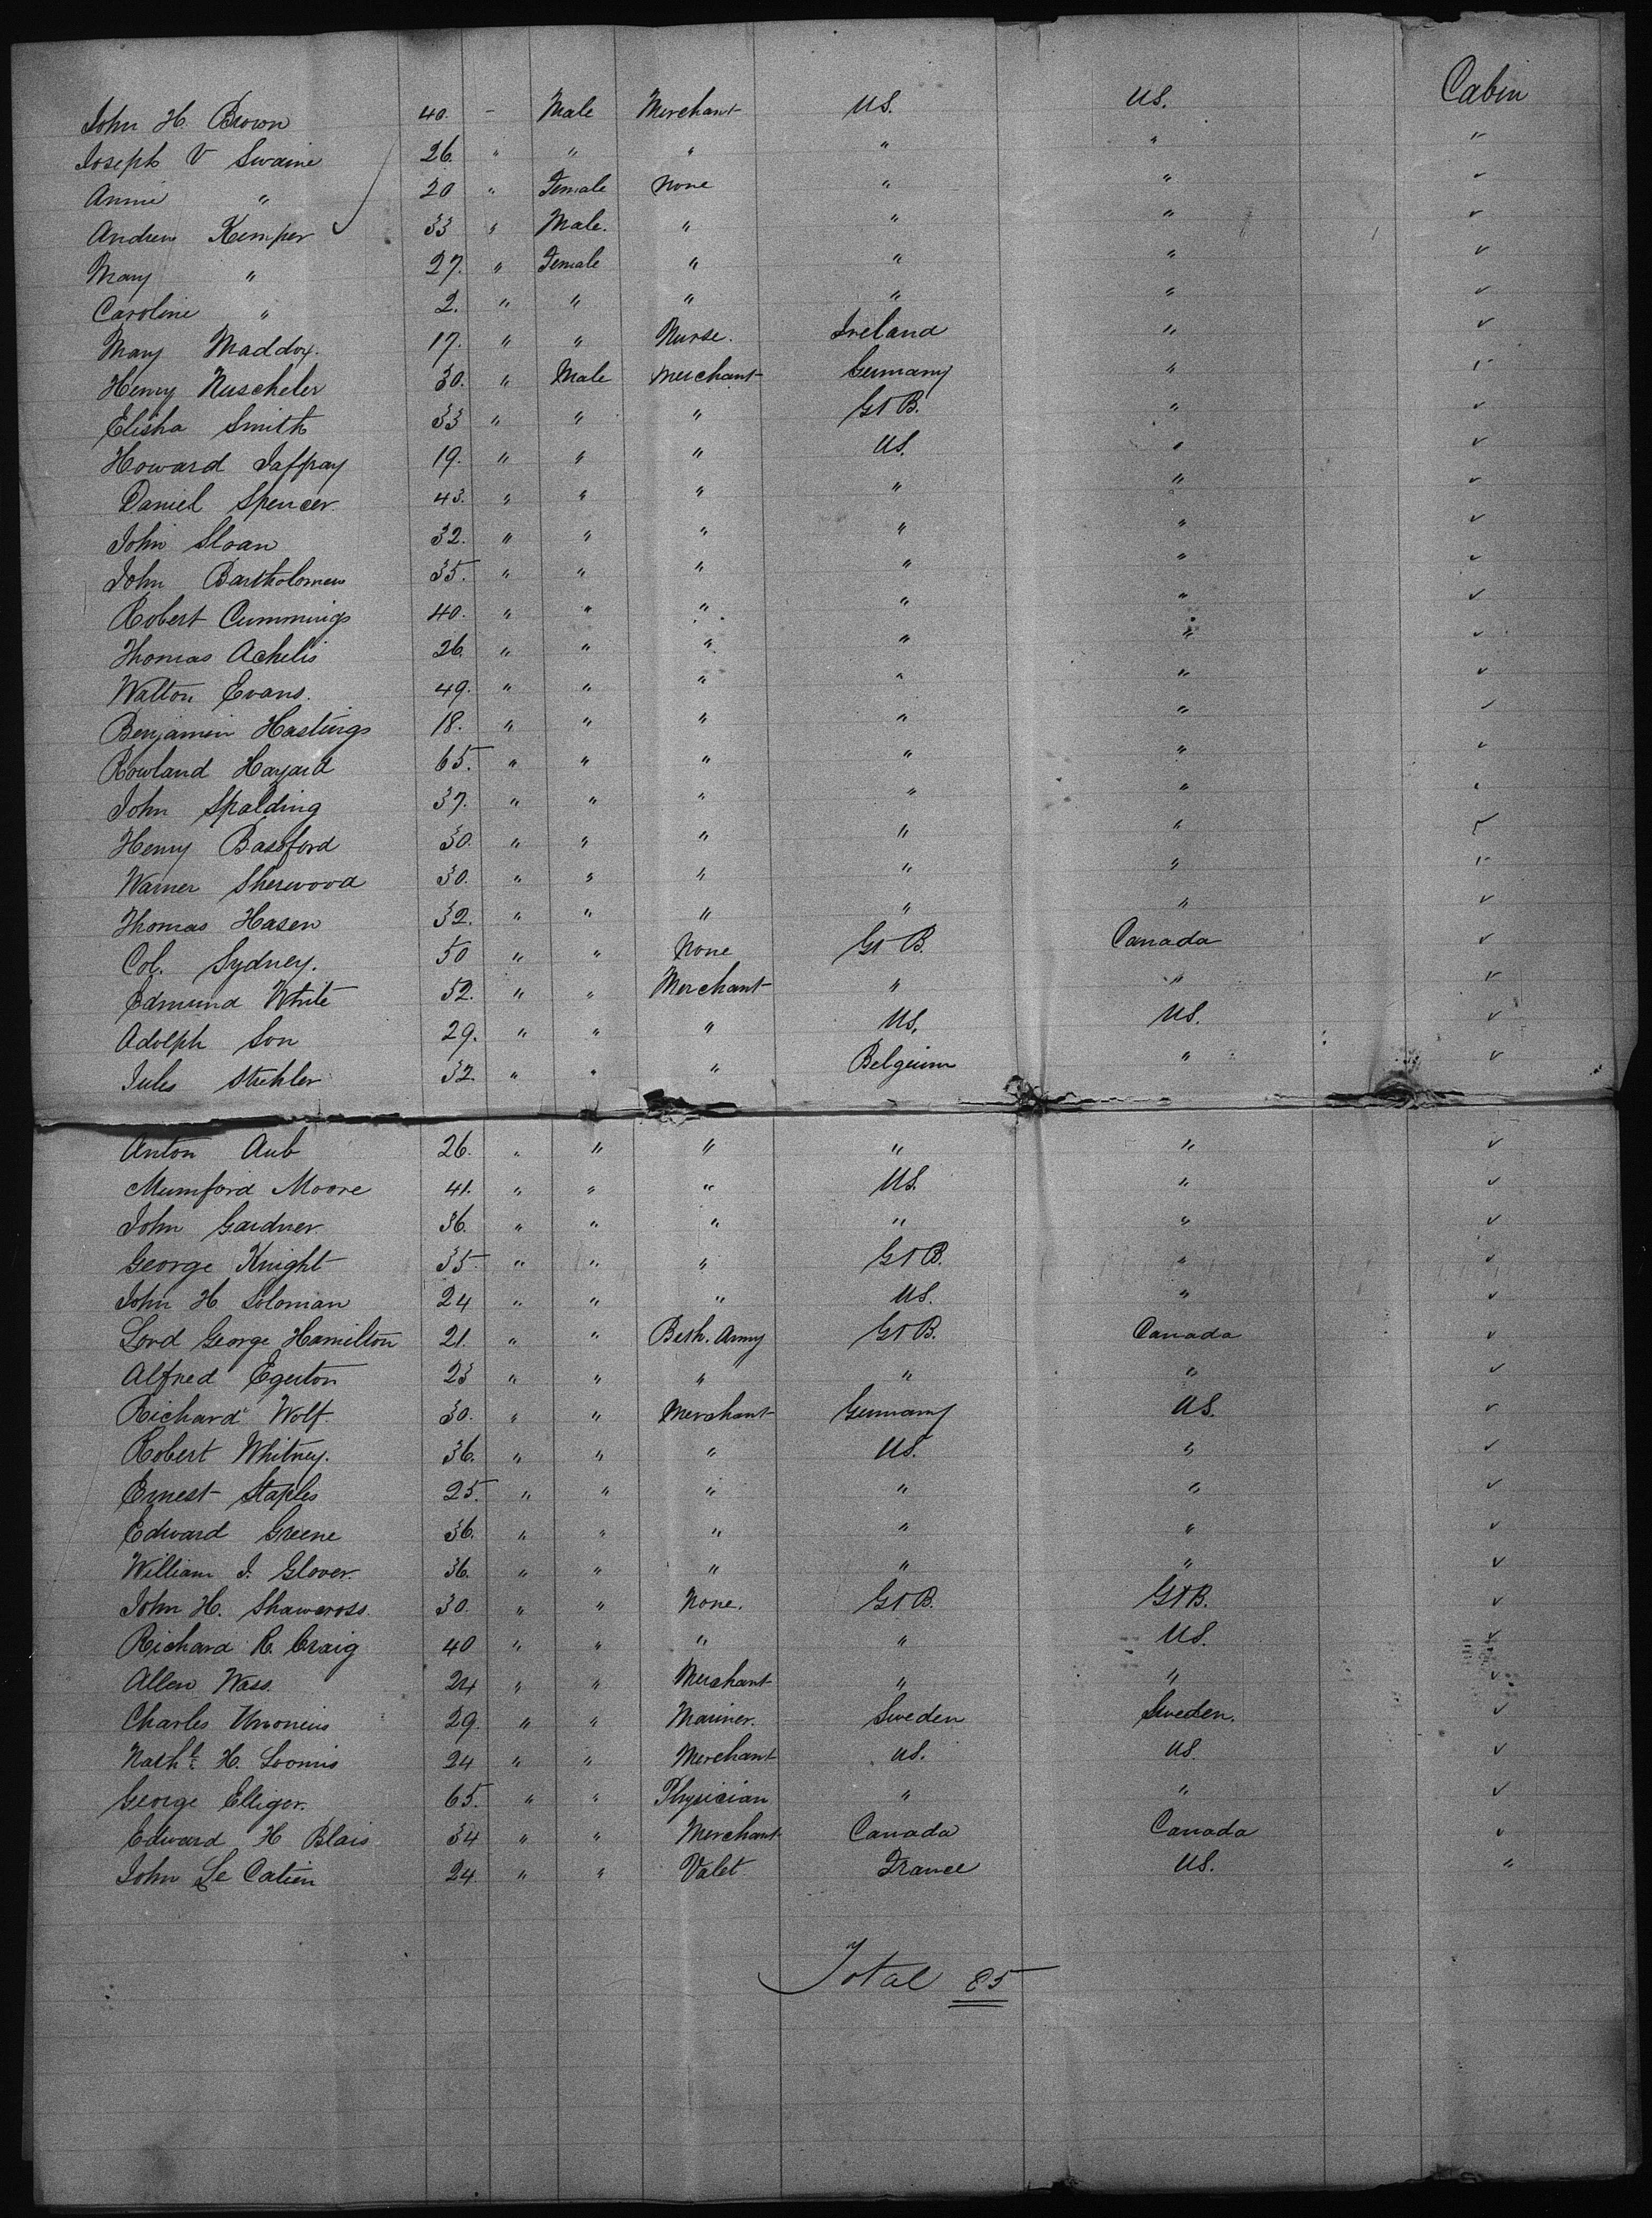 Cabin
John H. Brown 40. - Male Merchant US. US.
Joseph V Swaine 26. " " " " " "
Annie " 20 " Female None " " "
Andrew Kemper 33 " Male. " " " "
Mary " 27. " Female " " " "
Caroline " 2. " " " " " "
Mary Maddox. 17. " " Nurse. Ireland " "
Henry Nuscheler 30. " Male Merchant Germany " "
Elisha Smith 33 " " " Gt B. " "
Howard Jaffray 19. " " " US. " "
Daniel Spencer 43. " " " " " "
John Sloan 32. " " " " " "
John Bartholomew 35. " " " " " "
Robert Cummings 40. " " " " " "
Thomas Achelis 26. " " " " " "
Walton Evans. 49. " " " " " "
Benjamin Hastings 18. " " " " " "
Rowland Hazard 65. " " " " " "
John Spalding 37. " " " " " "
Henry Bassford 30. " " " " " "
Warner Sherwood 30. " " " " " "
Thomas Hasen 32. " " " " " "
Col. Sydney. 50 " " None Gt B. Canada "
Edmund White 52. " " Merchant " " "
Adolph Son 29. " " " US. US. "
Jules 32. " " " Belgium " "
Anton Aub 26. " " " " " "
Mumford Moore 41. " " " US. " "
John Gardner 36. " " " " " "
George Knight 35. " " " Gt B. " "
John H Soloman 24 " " " US. " "
Lord George Hamilton 21. " " Army Gt B. Canada "
Alfred Egerton 23 " " " " " "
Richard Wolf. 30. " " Merchant Germany US. "
Robert Whitney. 36. " " " US. " "
Ernest Staples 25. " " " " " "
Edward Greene 36. " " " " " "
William J. Glover. 36. " " " " " "
John H. Shawcross. 30. " " None. Gt B. Gt B. "
Richard R. Craig 40 " " " " US. "
Allen Wass. 24 " " Merchant " " "
Charles 29. " " Mariner. Sweden Sweden. "
Nathl. H. Loomis 24 " " Merchant US. US. "
George Elliger. 65. " " Physician " " "
Edward H Blais 34 " " Merchant Canada Canada "
John Le 24. " " Valet France US. "
Total 85